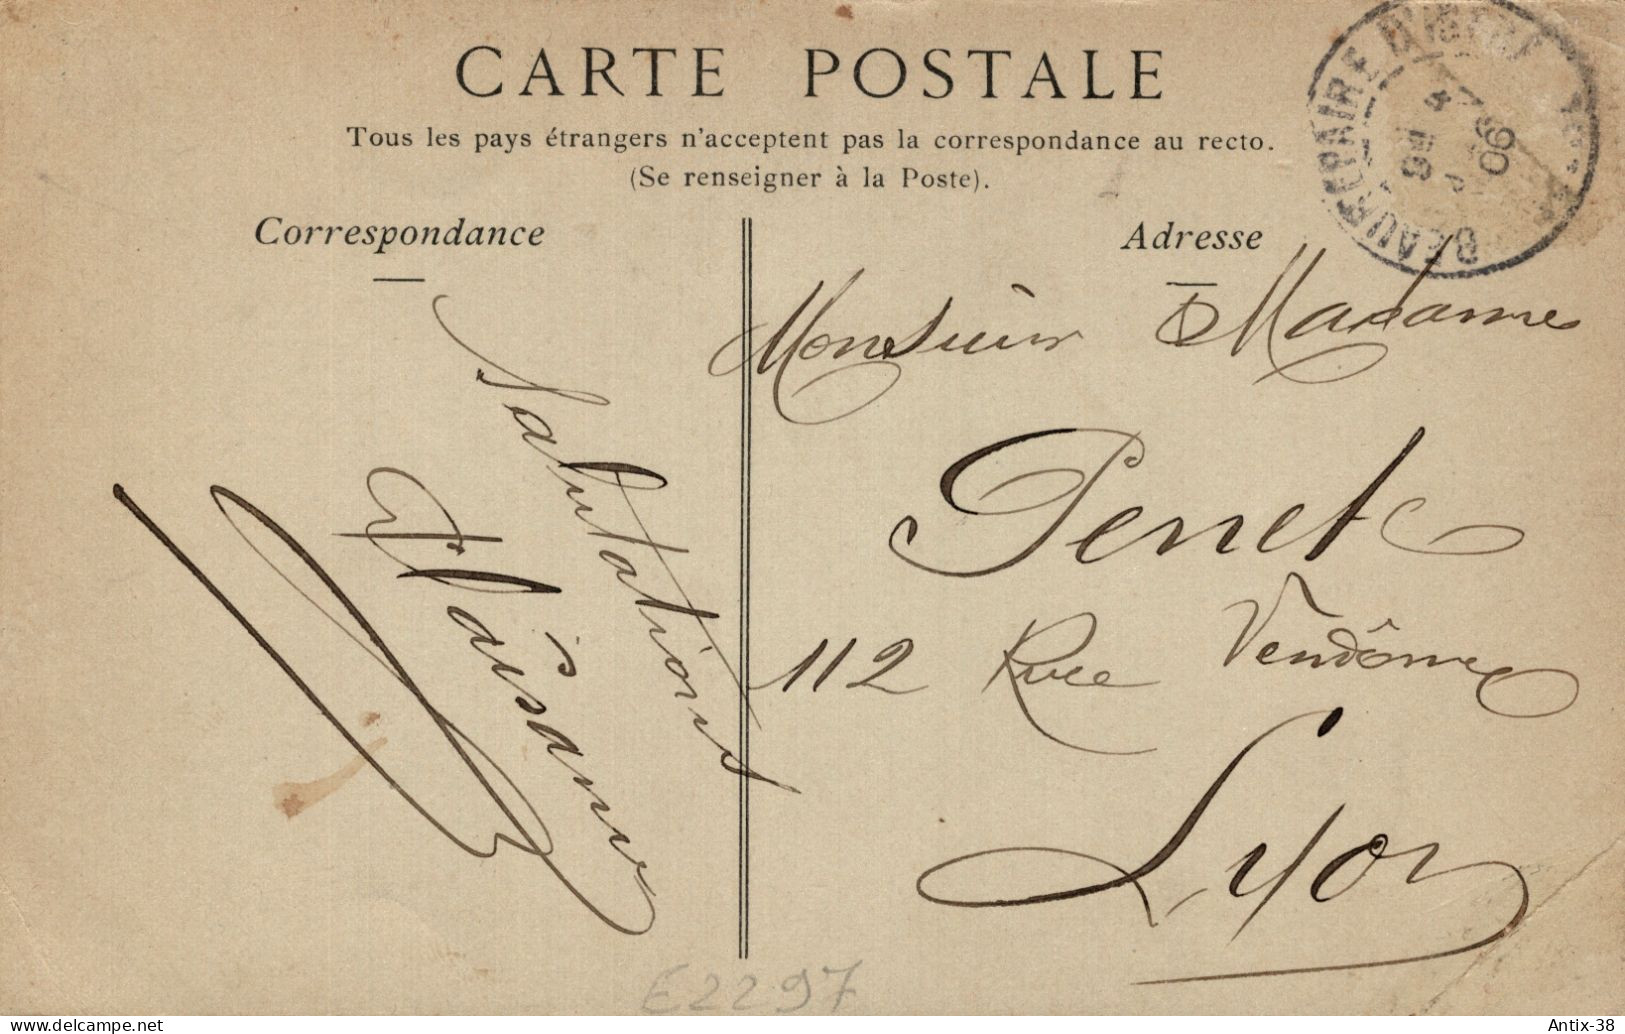 CARTE POSTALE
Tous les pays étrangers n'acceptent pas la correspondance au recto.
(Se renseigner à la Poste).
Correspondance
Adresse
Salutations
Monsieur & Madame
Penet
112 Rue Vendôme
Lyon
BEAUREPAIRE D'ISERE
06
E2297
Antix-38
delcampe.net